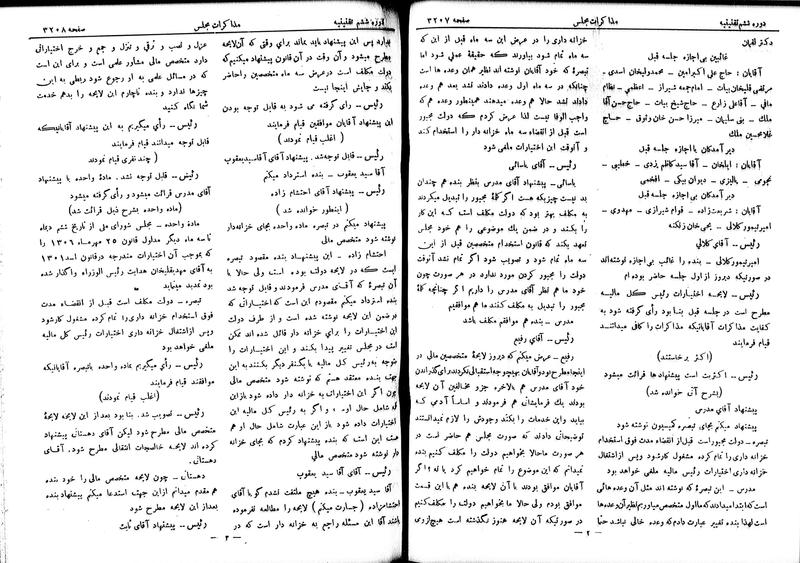 دوره ششم تقنینیه
مذاکرات مجلس
صفحه ۳۲۰۷
دکتر لقمان
غائبین بی اجازه جلسه قبل
آقایان : حاج علی اکبر امین - محمد ولیخان اسدی -
مرتضی قلیخان بیات - امام جمعه شیراز - اعظمی - نظام
مافی - آقا علی زارع - حاج شیخ بیات - حاج حسن آقا
ملک - بنی سلیمان - میرزا حسن خان وثوق - حاج
غلامحسین ملک
دیر آمدگان با اجازه جلسه قبل
آقایان : ایلخان - آقا سید کاظم یزدی - خطیبی -
نجومی - پالیزی - دیوان بیگی - افخمی
دیر آمدگان بی اجازه جلسه قبل
آقایان : شریعت زاده - قوام شیرازی - مهدوی -
امیر تیمور کلالی - یحیی خان زنگنه
رئیس - آقای کلالی
امیر تیمور کلالی - بنده را غائب بی اجازه نوشته‌اند
در صورتیکه دیروز از اول جلسه حاضر بوده ام
رئیس - لایحه اختیارات رئیس کل مالیه
مطرح است در جلسه قبل بنا بود رأی گرفته شود به
کفایت مذاکرات آقایانیکه مذاکرات را کافی میدانند
قیام فرمایند
(اکثر برخاستند)
رئیس - اکثریت است پیشنهادها قرائت میشود
(بشرح آتی خوانده شد)
پیشنهاد آقای مدرس
پیشنهاد میکنم بجای تبصره کمیسیون نوشته شود
تبصره - دولت مجبور است قبل از انقضاء مدت فوق استخدام
خزانه داری را تمام کرده مشغول کار شود و پس از اشتغال
خزانه داری اختیارات رئیس مالیه ملغی خواهد بود
مدرس - این تبصره که نوشته اند مثل آن وعده هائی
است که ابتدا میدادند که ما اول متخصص میاوریم نظیر آن وعده ها
است لهذا بنده تغییر عبارت دادم که وعده خالی نباشد حتما
خزانه داری را در عرض این سه ماه قبل از این که
سه ماه تمام شود بیاورند که حقیقة عملی شود اما
تبصره که خود آقایان نوشته اند نظیر همان وعده ها است
چنانچه در سه ماه اول وعده دادند نشد بعد هم وعده
دادند نشد حالا هم وعده میدهند همینطور وعده هم که
واجب الوفا نیست لذا عرض کردم که دولت مجبور
است قبل از انقضاء سه ماه خزانه دار را استخدام کند
و آنوقت این اختیارات ملغی شود
رئیس - آقای یاسائی
یاسائی - پیشنهاد آقای مدرس بنظر بنده هم چندان
بد نیست چیزیکه هست اگر کلمۀ مجبور را تبدیل میکردند
به مکلف بهتر بود که دولت مکلف است که این کار
را بکند و در ضمن یک موضوعی را هم خود مجلس
تعهد بکند که قانون استخدام متخصصین قبل از این
سه ماه تمام شود و تصویب شود اگر تمام نشد آنوقت
دولت را مجبور کردن مورد ندارد در هر صورت چون
خود ما هم نظر آقای مدرس را داریم اگر چنانچه کلمۀ
مجبور را تبدیل به مکلف کنند ما هم موافقیم
مدرس - بنده هم موافقم مکلف باشد
رئیس - آقای رفیع
رفیع - عرض میکنم که دیروز لایحۀ متخصصین مالی در
اینجا مطرح بود و آقایان بهیچوجه استقبالی نکردند برای گذراندن
خود آقای مدرس هم بالاخره جزو مخالفین آن لایحه
بودند یک فرمایشاتی هم فرمودند و اساساً آدمی که
بیاید و این خدمات را بکند وجودش را لازم نمیدانستند
توضیحاتی دادند که صورت مجلس هم حاضر است در
هر صورت ما حالا بخواهیم دولت را مکلف کنیم بنده
نمیدانم که این موضوع را تمام خواهیم کرد یا نه؟ اگر
آقایان موافق بودند با آن لایحه بنده هم با این قسمت
موافق بودم ولی حالا ما بخواهیم دولت را مکلف کنیم
در صورتیکه آن لایحه هنوز نگذشته است هیچ لازوی
- ۲ -
دوره ششم تقنینیه
مذاکرات مجلس
صفحه ۳۲۰۸
ندارد پس این پیشنهاد باید بماند برای وقتی که آن لایحه
مطرح میشود و آن وقت در آن قانون پیشنهاد میکنیم که
دولت مکلف است در عرض سه ماه متخصصین را حاضر
بکند و جایش اینجا نیست
رئیس - رأی گرفته می شود به قابل توجه بودن
این پیشنهاد آقایان موافقین قیام فرمایند
( اغلب قیام نمودند )
رئیس - قابل توجه شد. پیشنهاد آقای آقا سید یعقوب
آقا سید یعقوب - بنده استرداد میکنم
رئیس - پیشنهاد آقای احتشام زاده
( اینطور خوانده شد )
پیشنهاد میکنم در تبصره ماده واحده بجای خزانه دار
نوشته شود متخصص مالی
احتشام زاده - این پیشنهاد بنده مقصود تبصره
است که در لایحه دولت بوده است ولی حالا با
آن تبصرۀ که آقای مدرس فرمودند و قابل توجه شد
بنده استرداد میکنم مقصودم این است که اختیاراتی که
در ضمن این لایحه نوشته شده است و از طرف دولت
این اختیارات را برای خزانه دار قائل شده اند ممکن
است در مجلس تغییر پیدا بکند و این اختیارات را
متوجه به رئیس کل مالیه یا یکنفر دیگر بکنند به این
جهت بنده معتقد هستم که نوشته شود متخصص مالی
چون اگر این اختیارات به خزانه دار داده شود باز این
شامل حال او و اگر به رئیس کل مالیه این
اختیارات داده شود باز این عبارت شامل حال او هم
هست این است که بنده پیشنهاد کردم که بجای خزانه
دار نوشته شود متخصص مالی
رئیس - آقای آقا سید یعقوب
آقا سید یعقوب - بنده هیچ ملتفت نشدم گویا آقای
احتشام زاده ( جسارت میکنم ) لایحه را مطالعه نفرموده
باشند آقا این مسئله راجع به خزانه دار است که در
عزل و نصب و ترقی و تنزل و جمع و خرج اختیاراتی
دارد متخصص مالی مشاور علمی است و برای این است
که در مسائل علمی به او رجوع شود ربطی به این
چیزها ندارد و بنده ناچارم این لایحه را بدهم خدمت
شما نگاه کنید
رئیس - رأی میگیریم به این پیشنهاد آقایانیکه
قابل توجه میدانند قیام فرمایند
( چند نفری قیام نمودند )
رئیس - قابل توجه نشد . ماده واحده با پیشنهاد
آقای مدرس قرائت میشود و رأی گرفته میشود
(ماده واحده بشرح ذیل قرائت شد)
ماده واحده - مجلس شورای ملی از تاریخ ششم دیماه
تا سه ماه دیگر مداول قانون ۲۵ مهر ماه ۱۳۰۶ را
که بموجب آن اختیارات مندرجه در قانون اسد ۱۳۰۱
به آقای مهدیقلیخان هدایت رئیس الوزراء واگذار شده
بود تمدید مینماید
تبصره - دولت مکلف است قبل از انقضاء مدت
فوق استخدام خزانه داری را تمام کرده مشغول کار شود
و پس از اشتغال خزانه داری اختیارات رئیس کل مالیه
ملغی خواهد بود
رئیس - رأی میگیریم بماده واحده با تبصره آقایانیکه
موافقند قیام فرمایند
(اغلب قیام نمودند)
رئیس - تصویب شد. بنا بود بعد از این لایحه لایحۀ
متخصص مالی مطرح شود لیکن آقای دهستانی پیشنهاد
کرده اند لایحه خالصجات انتقالی مطرح شود. آقای
دهستانی.
دهستانی - چون لایحه متخصص مالی را خود بنده
هم مقدم میدانم از این جهت استدعا میکنم پیشنهاد بنده
بعد از این لایحه مطرح شود
رئیس - پیشنهاد آقای ثابت
- ۳ -